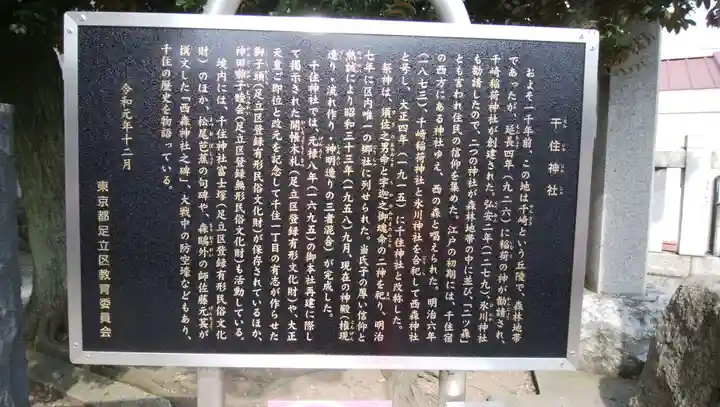 千住神社
およそ一千年前、この地は千崎という高陵で、森林地帯
であったが、延長四年（九二六）に稲荷の神が勧請され、
千崎稲荷神社が創建された。弘安二年（一二七九）氷川神社
も勧請したので、二つの神社が森林地帯の中に並び、「二ツ森」
とも言われ住民の信仰を集めた。江戸の初期には、千住宿
の西方にある神社ゆえ、西の森と唱えられた。明治六年
（一八七三）、千崎稲荷神社と氷川神社を合祀して西森神社
と号し、大正四年（一九一五）に千住神社と改称した。
祭神は、須佐之男命と宇迦之御魂命の二神を祀り、明治
七年に区内唯一の郷社に列せられた。当氏子の厚い信仰と
熱誠により昭和三十三年（一九五八）九月、現在の神殿（権現
造り、流れ作り、神明造りの三者混合）が完成した。
千住神社では、元禄八年（一六九五）の御本社再建に際し
て掲示された開帳木札（足立区登録有形文化財）や、大正
天皇ご即位と改元を記念して千住一丁目の有志が作らせた
獅子頭（足立区登録有形民俗文化財）が保存されているほか、
神田囃子睦会（足立区登録無形民俗文化財）も活動している。
境内には、千住神社富士塚（足立区登録有形民俗文化
財）のほか、松尾芭蕉の句碑や、森鷗外の師佐藤元萇が
撰文した「西森神社之碑」、大戦中の防空壕などもあり、
千住の歴史を物語っている。
令和元年十二月
東京都足立区教育委員会